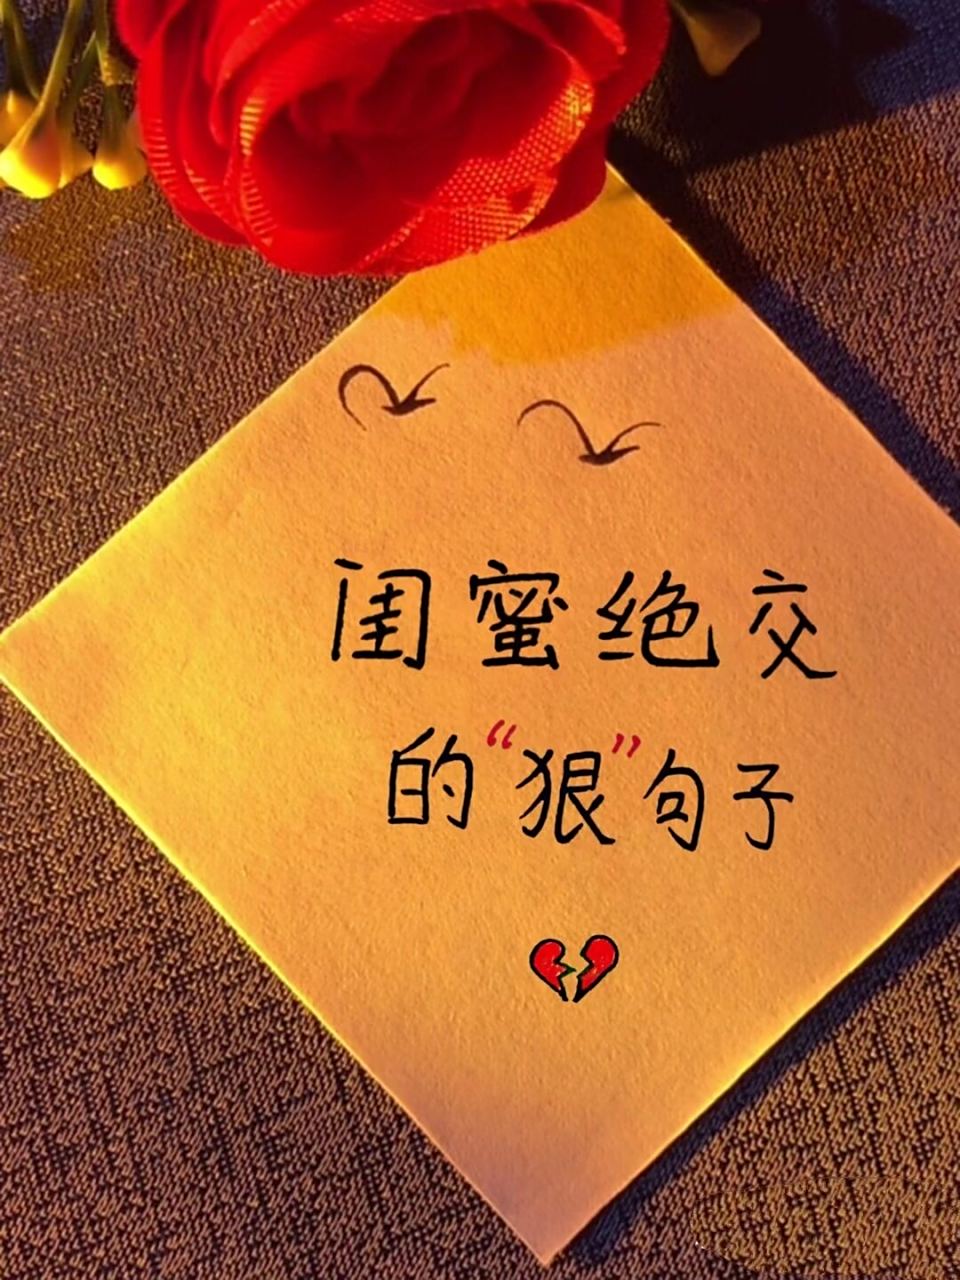 闺蜜绝交
的“狠”句子